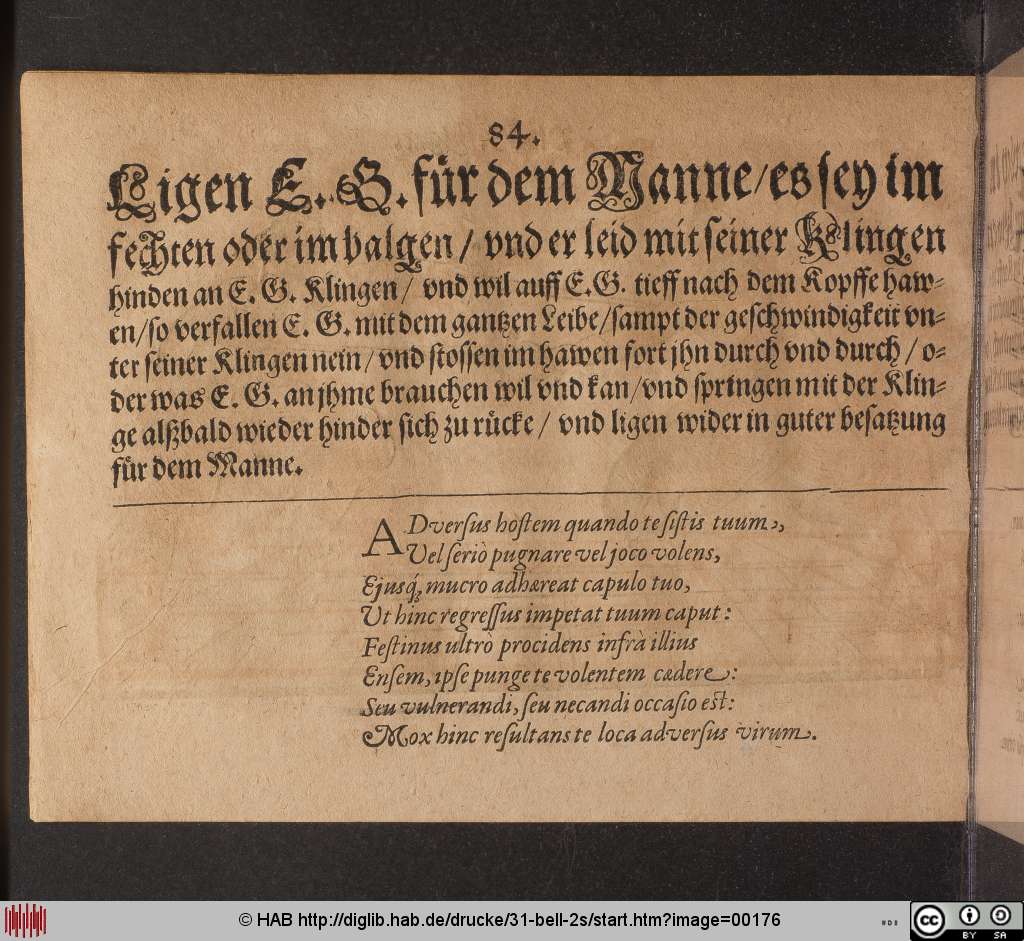 84.
Ligen E. G. für dem Manne/es sey im
fechten oder im balgen/ vnd er leid mit seiner Klingen
hinden an E. G. Klingen/ vnd wil auff E.G. tieff nach dem Kopffe haw-
en/so verfallen E. G. mit dem gantzen Leibe/sampt der geschwindigkeit vn-
ter seiner Klingen nein/vnd stossen im hawen fort jhn durch vnd durch/o-
der was E. G. an jhme brauchen wil vnd kan/vnd springen mit der Klin-
ge alßbald wieder hinder sich zu rücke/ vnd ligen wider in guter besatzung
für dem Manne.
ADversus hostem quando te sistis tuum,
Vel seriò pugnare vel joco volens,
Ejusq́; mucro adhæreat capulo tuo,
Ut hinc regressus impetat tuum caput:
Festinus ultrò procidens infrà illius
Ensem, ipse punge te volentem cædere:
Seu vulnerandi, seu necandi occasio est:
Mox hinc resultans te loca adversus virum.
© HAB http://diglib.hab.de/drucke/31-bell-2s/start.htm?image=00176
cc BY SA